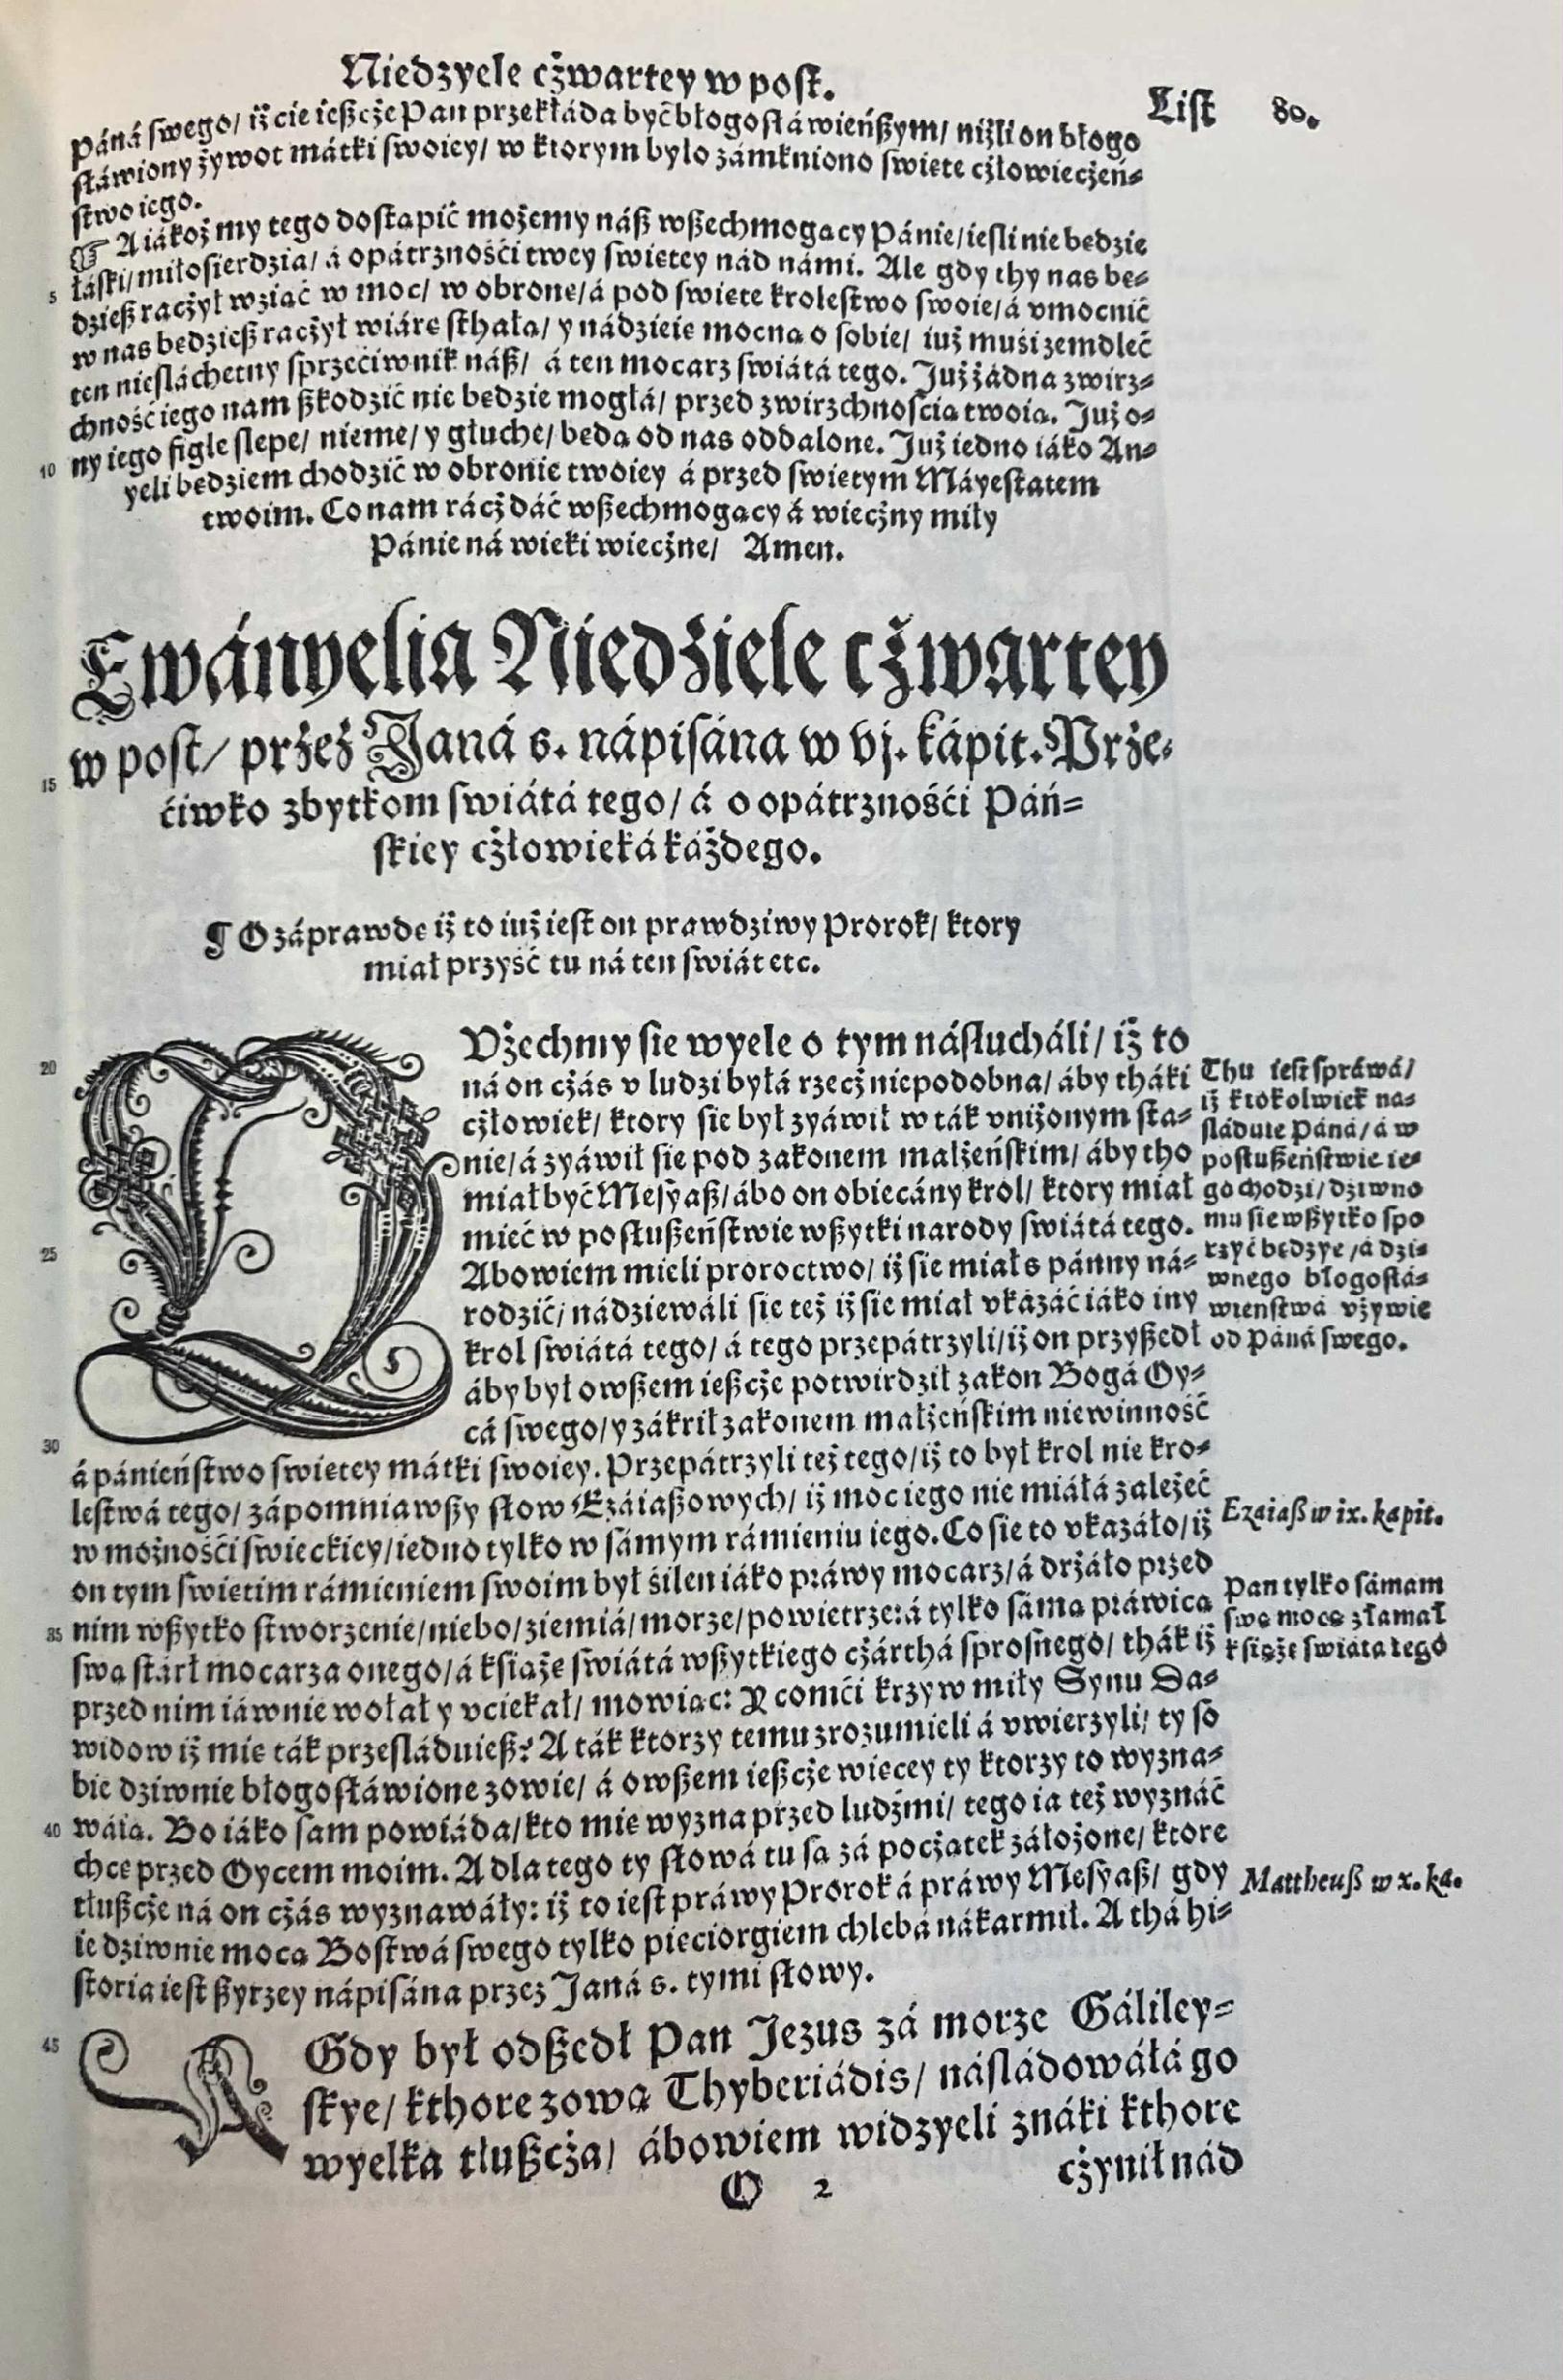 Niedzyele cżwartey w post.
List 80.
Páná swego/ iż cie ieszcże Pan przekłáda być błogosłáwieńszym/ niżli on błogo
słáwiony żywot mátki swoiey/ w ktorym było zámkniono swięte cżłowiecżeń⸗
stwo iego.
☞ A iákoż my tego dostąpić możemy náß wßechmogący Pánie/ iesli nie będzie
łáski/ miłosierdzia/ á opátrznośći twey swiętey nád námi. Ale gdy thy nas bę⸗
5
dzieß racżył wziąć w moc/ w obronę/ á pod swięte krolestwo swoie/ á vmocnić
w nas będzieß racżył wiárę sthałą/ y nádzieię mocną o sobie/ iuż muśi zemdleć
ten niesláchetny sprzećiwnik náß/ á ten mocarz swiátá tego. Już żadna zwirz⸗
chność iego nam ßkodzić nie będzie mogłá/ przed zwirzchnoscią twoią. Już o⸗
ny iego figle slepe/ nieme/ y głuche/ będą od nas oddalone. Już iedno iáko An⸗
10
yeli będziem chodzić w obronie twoiey á przed swiętym Máyestatem
twoim. Co nam rácż dáć wßechmogący á wiecżny miły
Pánie ná wieki wiecżne/ Amen.
Ewányelia Niedziele cżwartey
w post/ przez Janá s. nápisána w vj. kápit. Prze⸗
15
ćiwko zbytkom swiátá tego/ á o opátrznośći Páń⸗
skiey cżłowieká káżdego.
¶ O záprawdę iż to iuż iest on prawdziwy Prorok/ ktory
miał przyść tu ná ten swiát etc.
VŻechmy sie wyele o tym násłucháli/ iż to
20
ná on cżás v ludzi byłá rzecż niepodobna/ áby tháki
cżłowiek/ ktory sie był zyáwił w ták vniżonym sta⸗
nie/ á zyáwił sie pod zakonem małżeńskim/ áby tho
miał być Mesyaß/ ábo on obiecány krol/ ktory miał
mieć w posłußeństwie wßytki narody swiátá tego.
25
Abowiem mieli proroctwo/ iż sie miał s pánny ná⸗
rodzić/ nádziewáli sie też iż sie miał vkázáć iáko iny
krol swiátá tego/ á tego przepátrzyli/ iż on przyßedł
áby był owßem ießcże potwirdził zakon Bogá Oy⸗
cá swego/ y zákrił zakonem małżeńskim niewinność
30
á pánieństwo swiętey mátki swoiey. Przepátrzyli też tego/ iż to był krol nie kro⸗
lestwá tego/ zápomniawßy słow Ezáiaßowych/ iż moc iego nie miáłá zależeć
w możnośći swieckiey/ iedno tylko w sámym rámieniu iego. Co sie to vkazáło/ iż
on tym swiętim rámieniem swoim był śilen iáko práwy mocarz/ á drżáło przed
nim wßytko stworzenie/ niebo/ ziemiá/ morze/ powietrze: á tylko sáma práwicą
35
swą stárł mocarza onego/ á książe swiátá wßytkiego cżárthá sprosnego/ thák iż
przed nim iáwnie wołał y vciekał/ mowiąc: Y comći krzyw miły Synu Da⸗
widow iż mie ták przesláduieß? A ták ktorzy temu zrozumieli á vwierzyli/ ty so
bie dziwnie błogosłáwione zowie/ á owßem ießcże więcey ty ktorzy to wyzna⸗
wáią. Bo iáko sam powiáda/ kto mie wyzna przed ludźmi/ tego ia też wyznáć
40
chcę przed Oycem moim. A dla tego ty słowá tu są zá pocżątek záłożone/ ktore
tłußcże ná on cżás wyznawáły: iż to iest práwy Prorok á práwy Mesyaß/ gdy
ie dziwnie mocą Bostwá swego tylko pięciorgiem chlebá nákarmił. A thá hi⸗
storia iest ßyrzey nápisána przez Janá s. tymi słowy.
A Gdy był odßedł Pan Jezus zá morze Gáliley⸗
45
skye/ kthore zową Thyberiádis/ násládowáłá go
wyelka tłußcża/ ábowiem widzyeli znáki kthore
O 2
cżynił nád
Thu iest spráwá/
iż ktokolwiek na⸗
sláduie Páná/ á w
posłußeństwie ie⸗
go chodzi/ dziwno
mu sie wßytko spo
rzyć będzye/ á dzi⸗
wnego błogosłá⸗
wieństwá vżywie
od Páná swego.
Ezaiaß w ix. kapit.
Pan tylko sámam
swą mocą złamał
książe swiata tego
Mattheuß w x. ka.